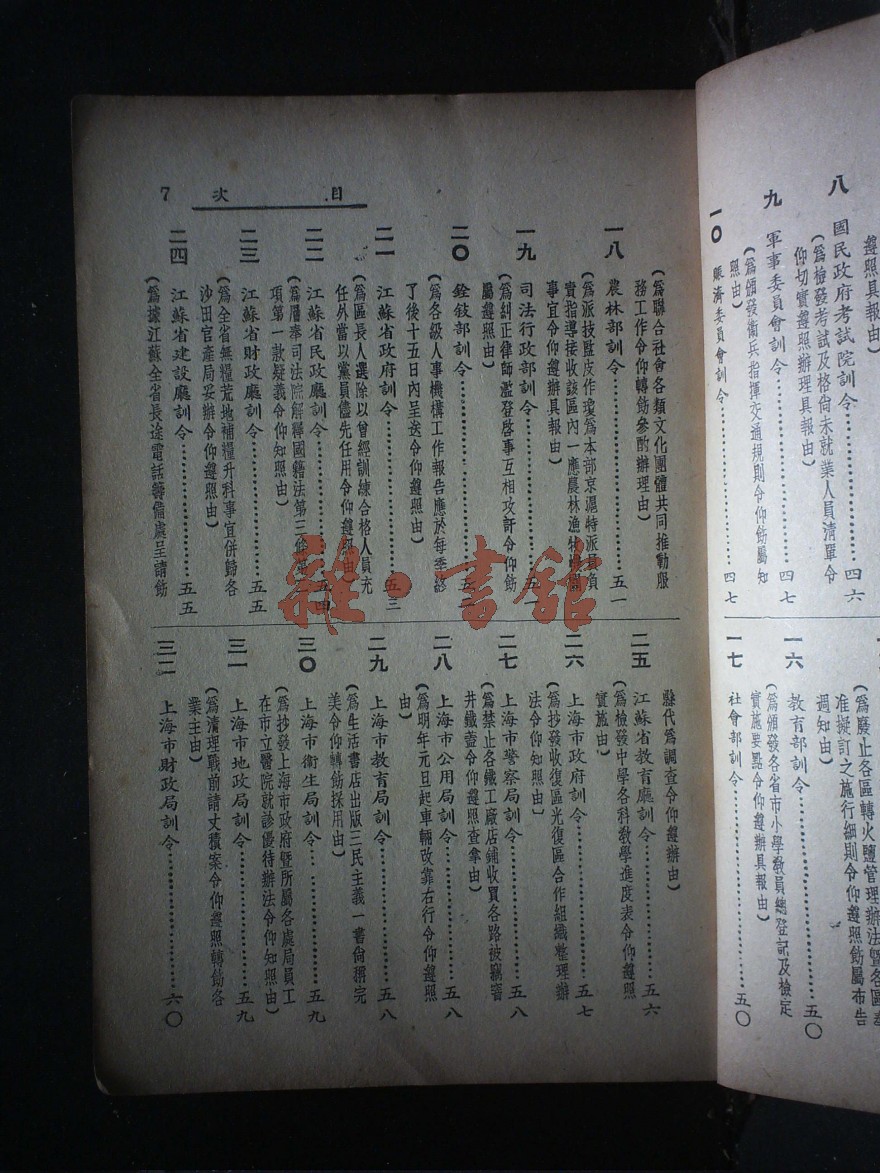 八　國民政府考試院訓令……四六
（爲檢發考試及格尙未就業人員淸單令
仰切實遵照辦理具報由）
九　軍事委員會訓令……四七
（爲頒發衞兵指揮交通規則令仰飭屬知
照由）
一〇　賑濟委員會訓令……四七
（爲廢止各區轉火鹽管理辦法曁各區
准擬訂之施行細則令仰遵照飭屬布告
週知由）
一六　敎育部訓令……五〇
（爲頒發各省市小學敎員總登記及檢定
實施要點令仰遵辦具報由）
一七　社會部訓令……五〇
目次　7
（爲聯合社會各類文化團體共同推動服
務工作令仰轉飭參酌辦理由）
一八　農林部訓令……五一
（爲派技監皮作瓊爲本部京滬特派員負
責指導接收該區內一應農林漁牧
事宜令仰遵辦具報由）
一九　司法行政部訓令……五二
（爲糾正律師濫登啓事互相攻訐令仰飭
屬遵照由）
二〇　銓敍部訓令……五二
（爲各級人事機構工作報吿應於每季終
了後十五日內呈送令仰遵照由）
二一　江蘇省政府訓令……五三
（爲區長人選除以曾經訓練合格人員充
任外當以黨員儘先任用令仰遵照由）
二二　江蘇省民政廳訓令……五四
（爲層奉司法院解釋國籍法第三條
項第一款疑義令仰知照由）
二三　江蘇省財政廳訓令……五五
（爲全省無糧荒地補糧升科事宜併歸各
沙田官產局妥辦令仰遵照由）
二四　江蘇省建設廳訓令……五五
（爲據江蘇全省長途電話籌備處呈請飭
縣代爲調查令仰遵辦由）
二五　江蘇省敎育廳訓令……五六
（爲檢發中學各科敎學進度表令仰遵照
實施由）
二六　上海市政府訓令……五七
（爲抄發收復區光復區合作組織整理辦
法令仰知照由）
二七　上海市警察局訓令……五八
（爲禁止各鐵工廠店鋪收買各路被竊窨
井鐵蓋令仰遵照查拿由）
二八　上海市公用局訓令……五八
（爲明年元旦起車輛改靠右行令仰遵照
由）
二九　上海市敎育局訓令……五八
（爲生活書店出版三民主義一書尙稱完
美令仰轉飭採用由）
三〇　上海市衞生局訓令……五九
（爲抄發上海市政府曁所屬各處局員工
在市立醫院就診優待辦法令仰知照由）
三一　上海市地政局訓令……五九
（爲淸理戰前請丈積案令仰遵照轉飭各
業主由）
三二　上海市財政局訓令……六〇
雜·書舘